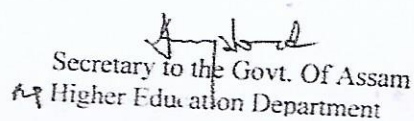 Secretary to the Govt. Of Assam
Higher Education Department